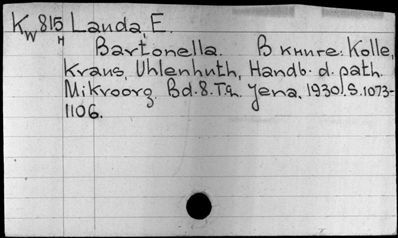 Kw 815 Landa, E.
H
Bartonella. В книге: Kolle,
Kraus, Uhlenhuth, Handb. d. path.
Mikroorg. Bd. 8. T. 2. Jena, 1930. S. 1073-
1106.